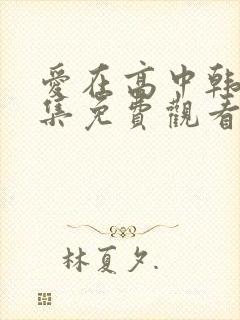 愛在高中韩
集免費觀看
林夏夕.